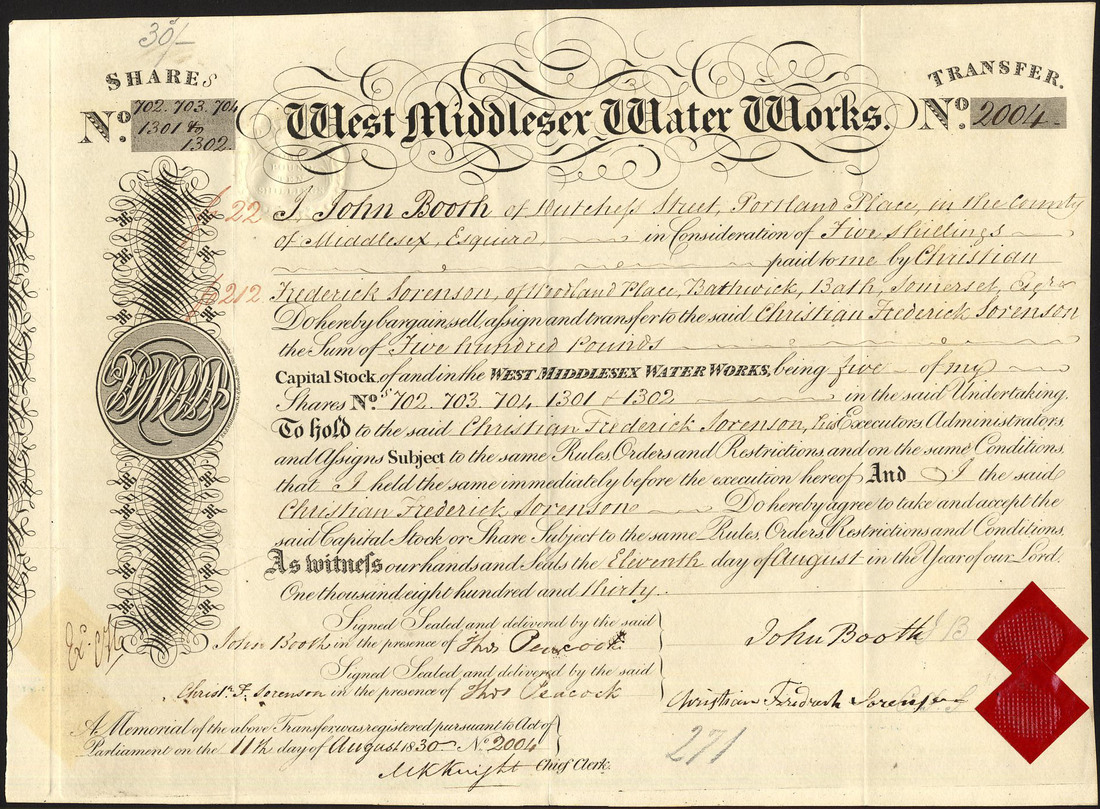 30/-
SHARES
TRANSFER.
No. 702. 703. 704
1301 &
1302
West Middlesex Water Works.
No. 2004
£22 I John Booth of Dutchess Street, Portland Place, in the County
of Middlesex, Esquire, in Consideration of Five shillings
paid to me by Christian
£212. Frederick Sorenson, of Portland Place, Bathwick, Bath, Somerset, Esqre
Do hereby bargain, sell, assign and transfer to the said Christian Frederick Sorenson
the Sum of Five hundred Pounds
Capital Stock, of and in the WEST MIDDLESEX WATER WORKS, being five of my
Shares No.s 702. 703. 704. 1301 & 1302 in the said Undertaking.
To hold to the said Christian Frederick Sorenson, his Executors, Administrators,
and Assigns Subject to the same Rules, Orders and Restrictions, and on the same Conditions,
that I held the same immediately before the execution hereof And I the said
Christian Frederick Sorenson Do hereby agree to take and accept the
said Capital Stock or Share Subject to the same Rules, Orders, Restrictions and Conditions.
As witness our hands and Seals the Eleventh day of August in the Year of our Lord.
One thousand eight hundred and thirty.
Signed Sealed and delivered by the said
John Booth in the presence of Thos Peacock
John Booth
Signed Sealed and delivered by the said
Christn. F. Sorenson in the presence of Thos Peacock
Christian Fredrick Sorenson
A Memorial of the above Transfer was registered pursuant to Act of
Parliament on the 11th day of August 1830 No. 2004
271
Chief Clerk.